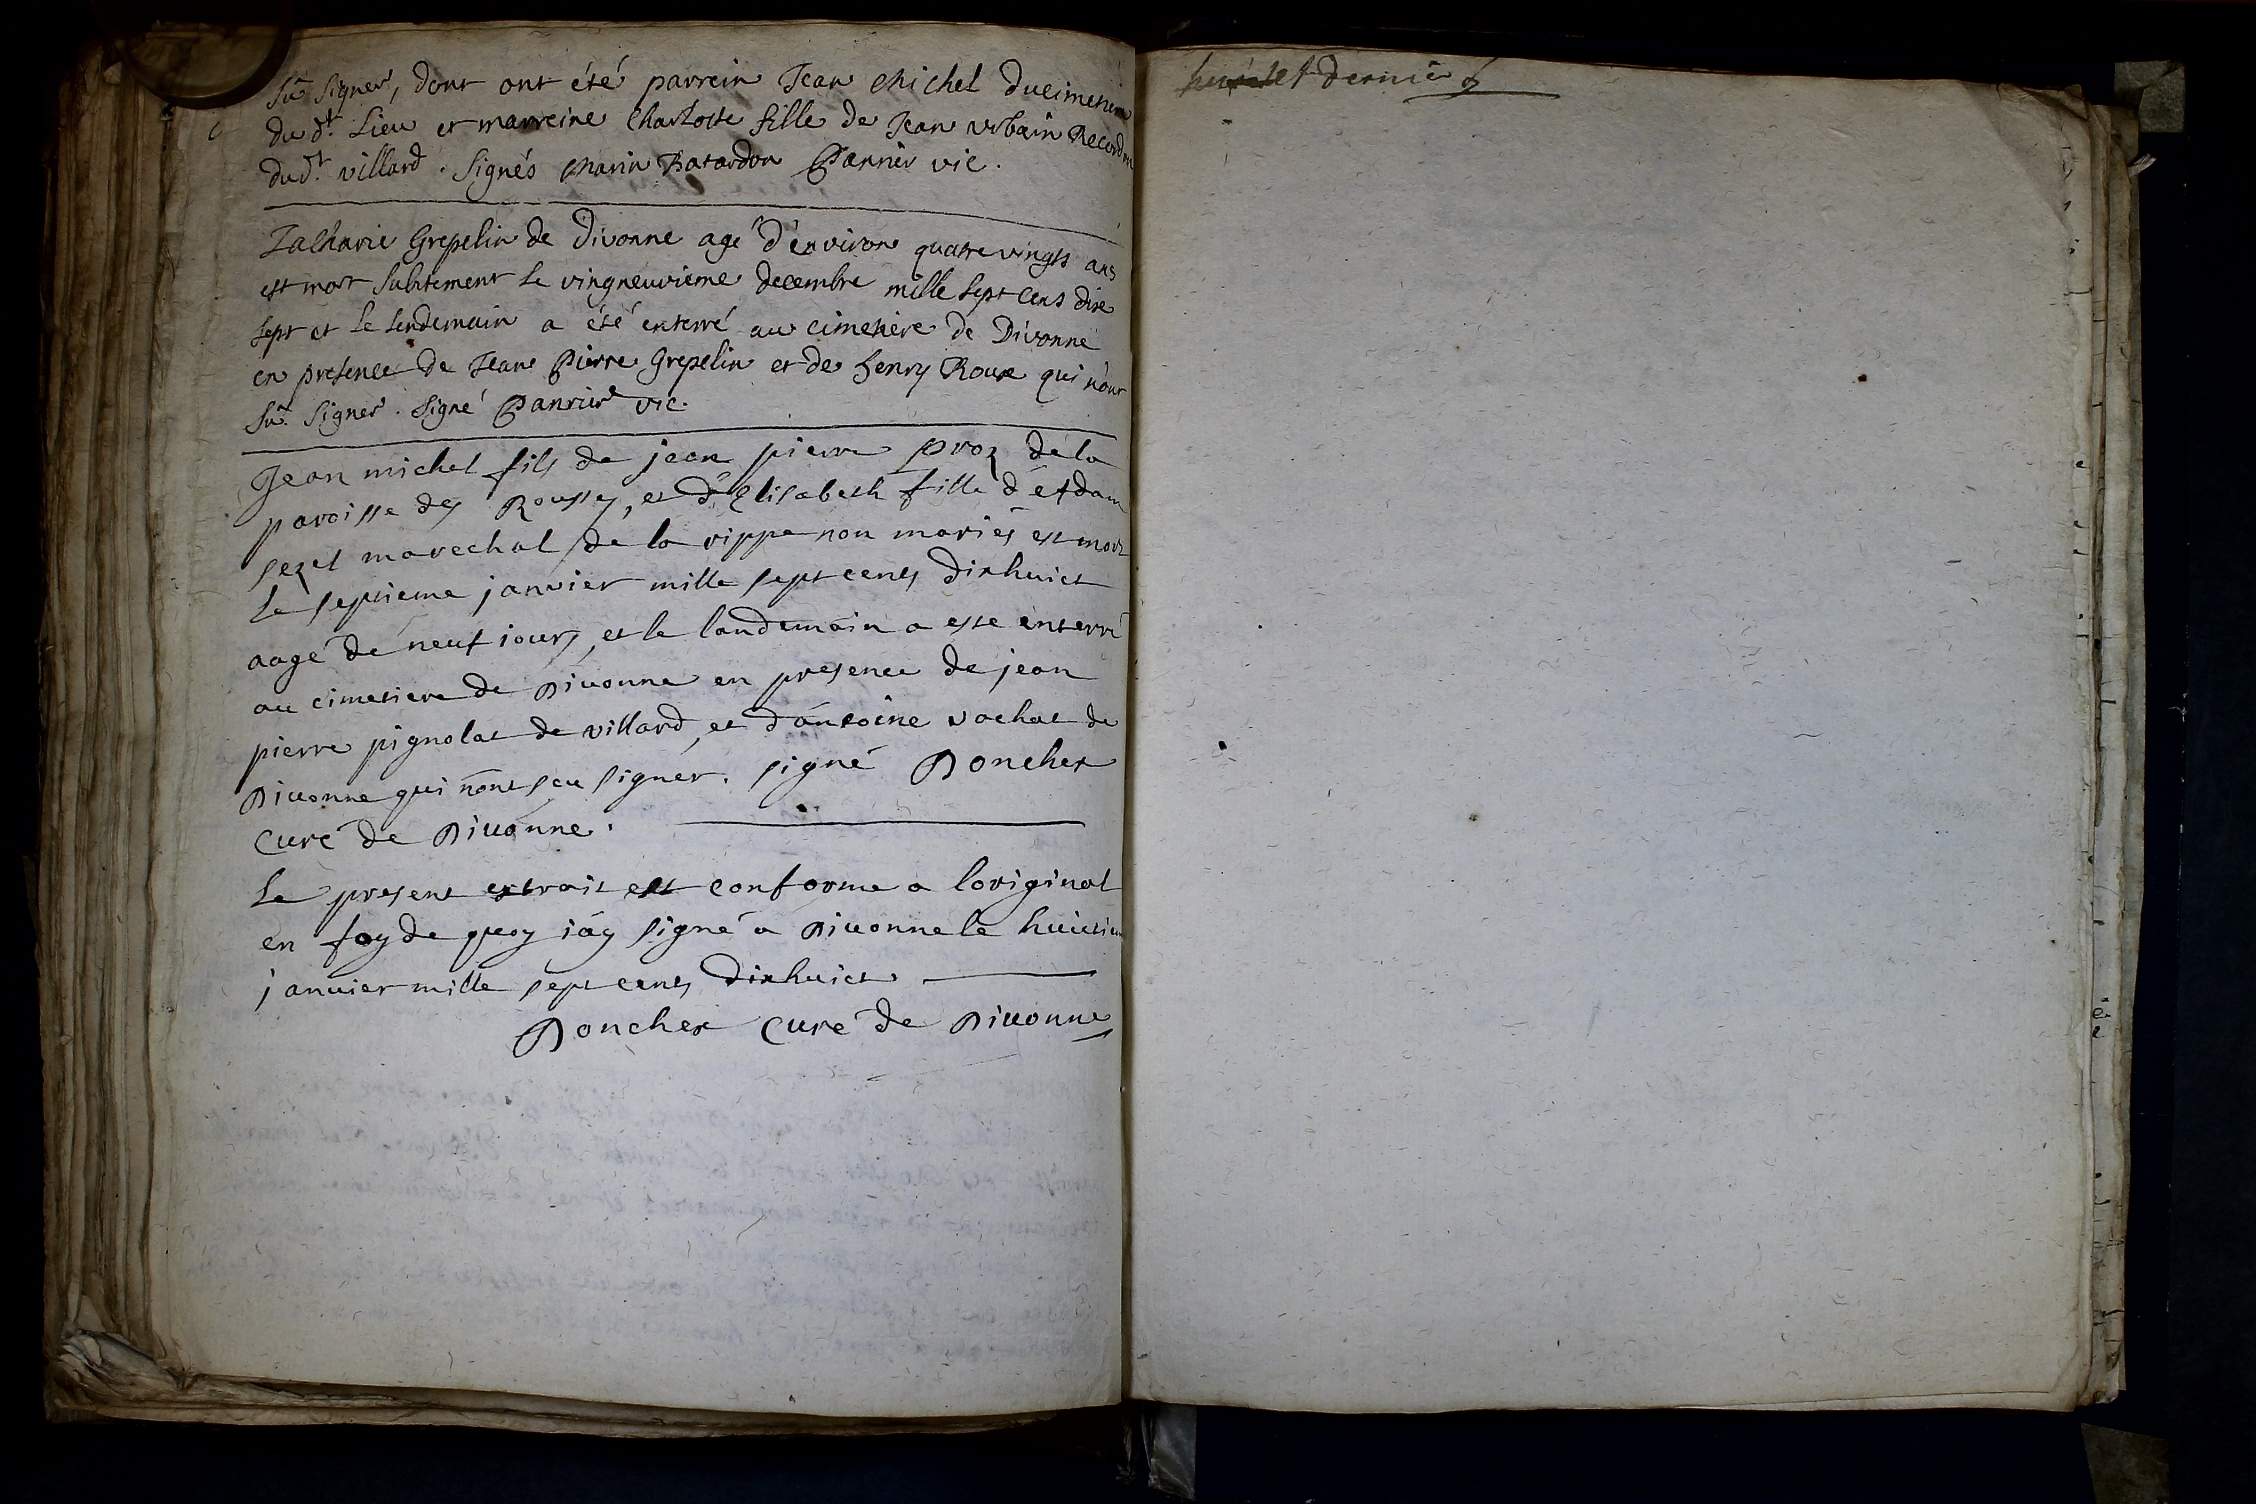 sû signer, dont ont été parrein Jean Michel Ducimetiere
du dt. Lieu et marreine Charlotte fille de Jean Urbain Recordon
du dt. villard. Signés Marin Batardon Panrier vic.
Zacharie Grepelin de Divonne agé d'environ quatre vingts ans
est mort subitement le vingneuvieme decembre mille sept cens dixe
sept et le lendemain a été enterré au cimetiere de Divonne
en presence de Jean Pierre Grepelin et de henry Roux qui n'ont
sû signer. Signé Panrier vic.
Jean michel fils de jean pierre proz de la
paroisse des Rousses, et d'Elisabeth fille d'Adam
sezel marechal de la rippe non mariés est mort
le septieme janvier mille sept cents dixhuict
aagé de neuf iours, et le landemain a esté enterré
au cimetiere de Divonne en presence de jean
pierre pignolat de villard, et d'antoine vachat de
Divonne qui n'ont sceu signer. signé Poncher
Curé de Divonne.
Le present extrait est conforme a loriginal
en foy de quoy i'ay signé a Divonne le huictiem
janvier mille sept cents dixhuict
Poncher Curé de Divonne
et dernier